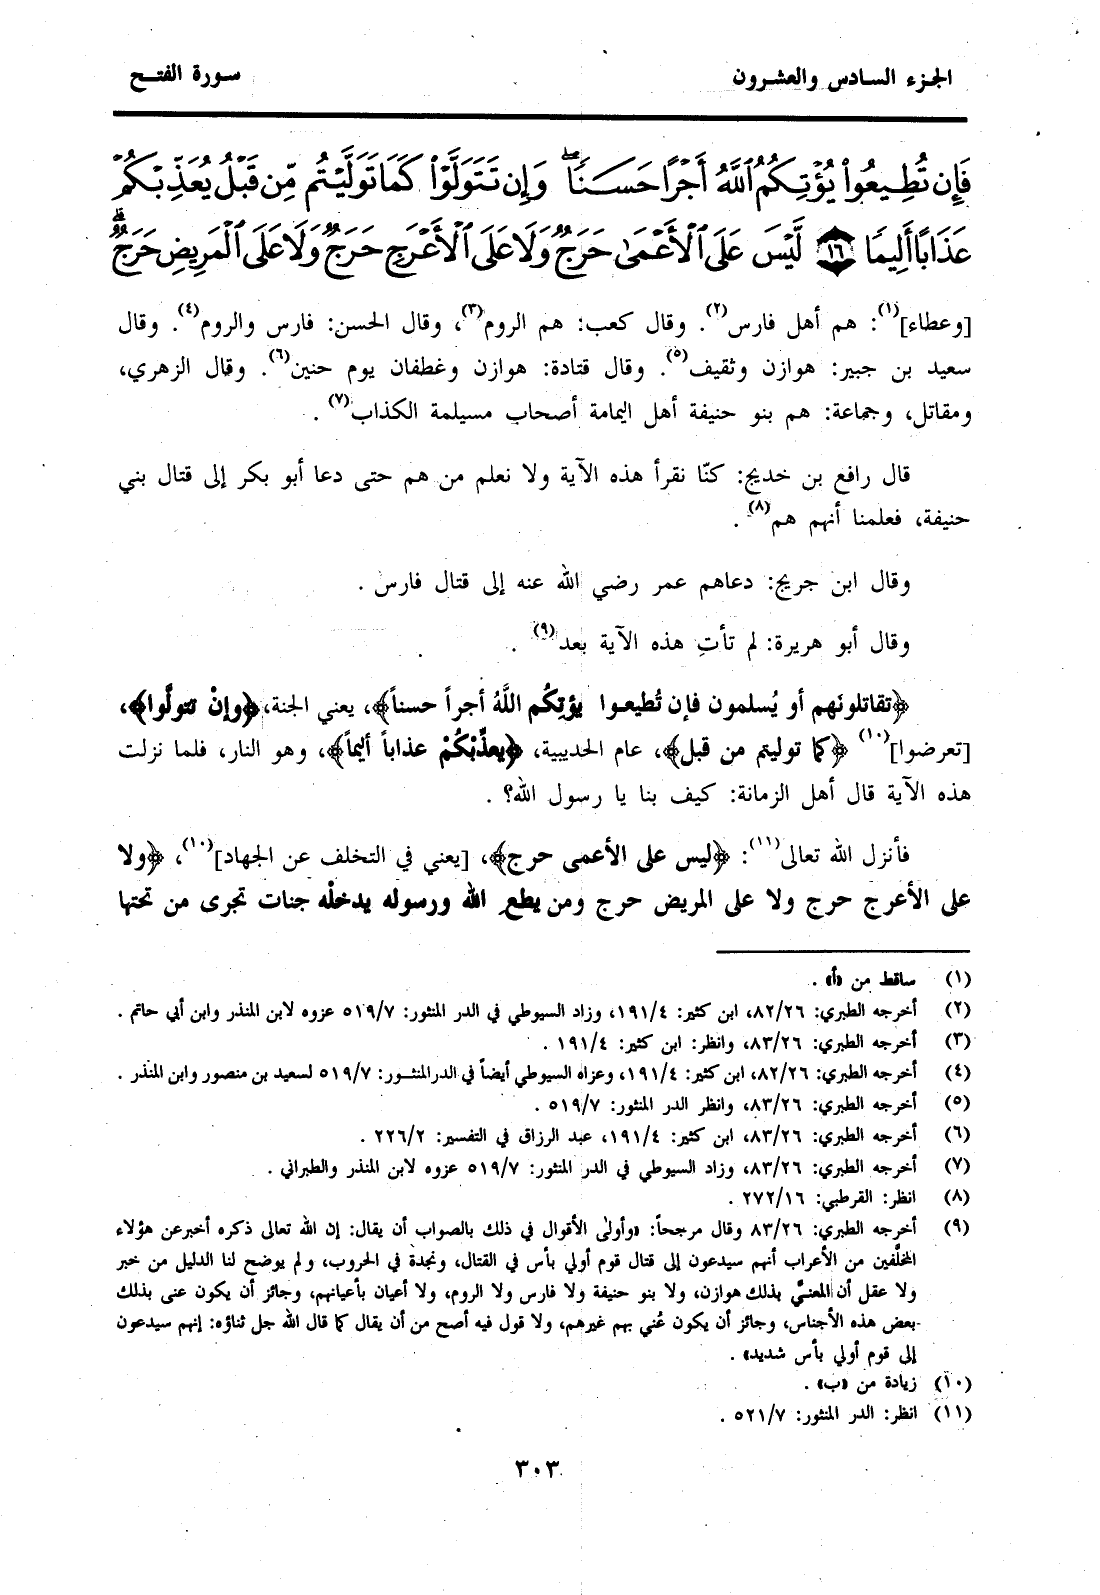 الجزء السادس والعشرون
سورة الفتح
فَإِن تُطِيعُوا۟ يُؤْتِكُمُ ٱللَّهُ أَجْرًا حَسَنًا ۖ وَإِن تَتَوَلَّوْا۟ كَمَا تَوَلَّيْتُم مِّن قَبْلُ يُعَذِّبْكُمْ
عَذَابًا أَلِيمًا ١٦ لَّيْسَ عَلَى ٱلْأَعْمَىٰ حَرَجٌ وَلَا عَلَى ٱلْأَعْرَجِ حَرَجٌ وَلَا عَلَى ٱلْمَرِيضِ حَرَجٌ ۗ
[وعطاء](١): هم أهل فارس(٢). وقال كعب: هم الروم(٣)، وقال الحسن: فارس والروم(٤). وقال
سعيد بن جبير: هوازن وثقيف(٥). وقال قتادة: هوازن وغطفان يوم حنين(٦). وقال الزهري،
ومقاتل، وجماعة: هم بنو حنيفة أهل اليمامة أصحاب مسيلمة الكذاب(٧).
قال رافع بن خديج: كنّا نقرأ هذه الآية ولا نعلم من هم حتى دعا أبو بكر إلى قتال بني
حنيفة، فعلمنا أنهم هم(٨).
وقال ابن جريج: دعاهم عمر رضي الله عنه إلى قتال فارس.
وقال أبو هريرة: لم تأتِ هذه الآية بعد(٩).
﴿تقاتلونَهم أو يُسلمون فإن تُطيعوا يؤتِكُم اللَّهُ أجراً حسناً﴾، يعني الجنة، ﴿وإنْ تتولَّوا﴾،
[تعرضوا](١٠) ﴿كما توليتم من قبل﴾، عام الحديبية، ﴿يعذِّبْكُمْ عذاباً أليماً﴾، وهو النار، فلما نزلت
هذه الآية قال أهل الزمانة: كيف بنا يا رسول الله؟ .
فأنزل الله تعالى(١١): ﴿ليس على الأعمى حرج﴾، [يعني في التخلف عن الجهاد](١٠)، ﴿ولا
على الأعرج حرج ولا على المريض حرج ومن يطع الله ورسوله يدخلْه جنات تجرى من تحتها
(١) ساقط من «أ» .
(٢) أخرجه الطبري: ٨٢/٢٦، ابن كثير: ١٩١/٤، وزاد السيوطي في الدر المنثور: ٥١٩/٧ عزوه لابن المنذر وابن أبي حاتم .
(٣) أخرجه الطبري: ٨٣/٢٦، وانظر: ابن كثير: ١٩١/٤ .
(٤) أخرجه الطبري: ٨٢/٢٦، ابن كثير: ١٩١/٤، وعزاه السيوطي أيضاً في الدرالمنثور: ٥١٩/٧ لسعيد بن منصور وابن المنذر .
(٥) أخرجه الطبري: ٨٣/٢٦، وانظر الدر المنثور: ٥١٩/٧ .
(٦) أخرجه الطبري: ٨٣/٢٦، ابن كثير: ١٩١/٤، عبد الرزاق في التفسير: ٢٢٦/٢ .
(٧) أخرجه الطبري: ٨٣/٢٦، وزاد السيوطي في الدر المنثور: ٥١٩/٧ عزوه لابن المنذر والطبراني .
(٨) انظر: القرطبي: ٢٧٢/١٦ .
(٩) أخرجه الطبري: ٨٣/٢٦ وقال مرجحاً: «وأولى الأقوال في ذلك بالصواب أن يقال: إن الله تعالى ذكره أخبرعن هؤلاء
المخلَّفين من الأعراب أنهم سيدعون إلى قتال قوم أولي بأس في القتال، ونجدة في الحروب، ولم يوضح لنا الدليل من خبر
ولا عقل أن المعنيَّ بذلك هوازن، ولا بنو حنيفة ولا فارس ولا الروم، ولا أعيان بأعيانهم، وجائز أن يكون عنى بذلك
بعض هذه الأجناس، وجائز أن يكون عُني بهم غيرهم، ولا قول فيه أصح من أن يقال كما قال الله جل ثناؤه: إنهم سيدعون
إلى قوم أولي بأس شديد» .
(١٠) زيادة من «ب» .
(١١) انظر: الدر المنثور: ٥٢١/٧ .
٣٠٣